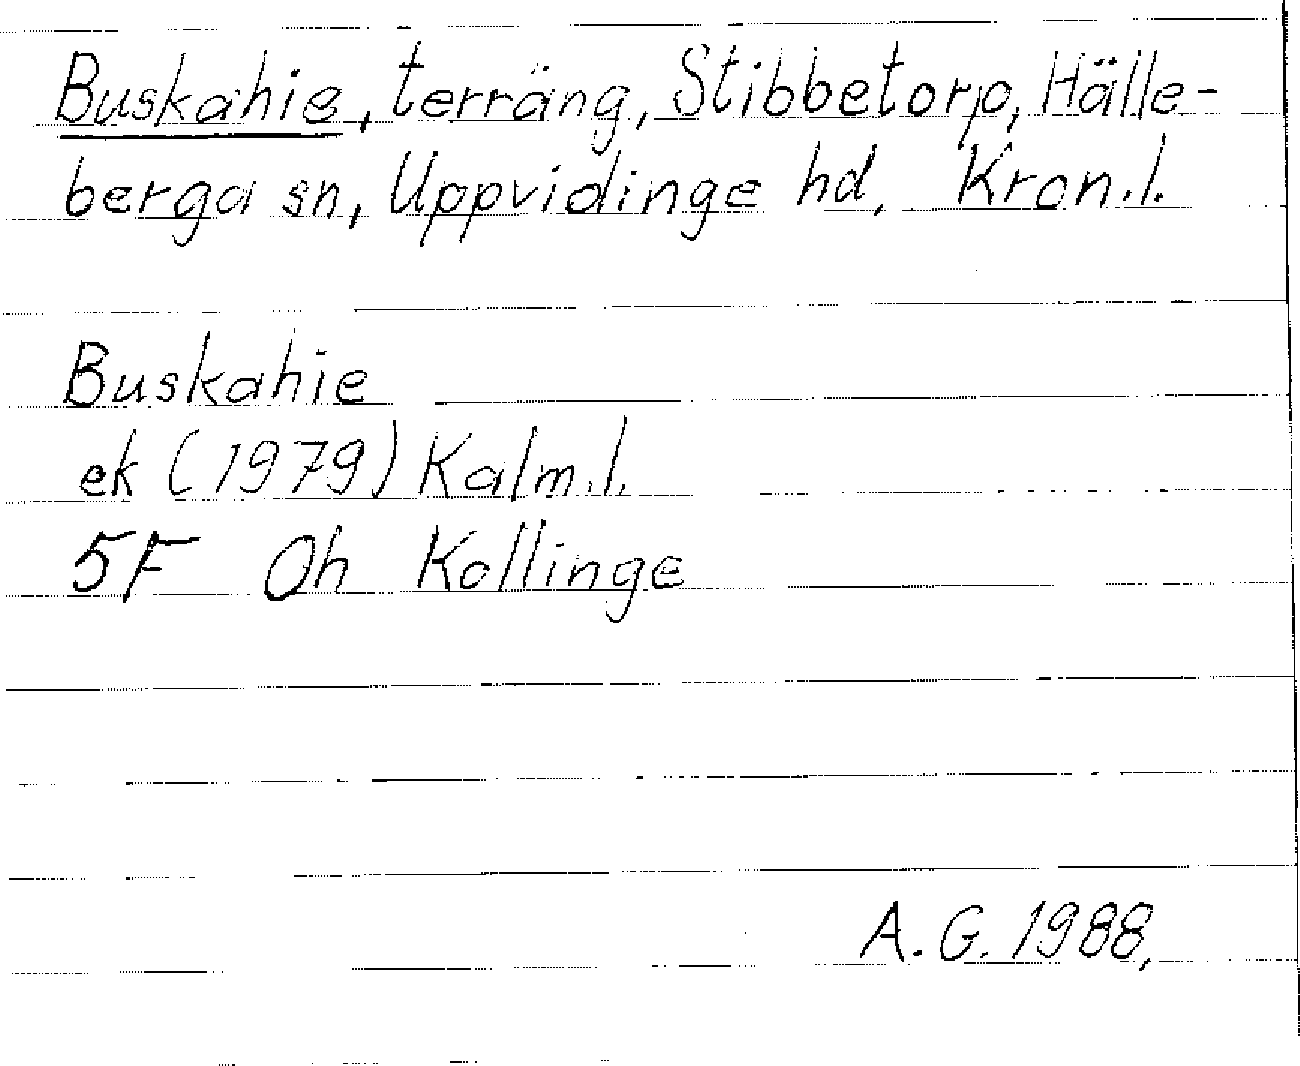 Buskahie, terräng, Stibbetorp, Hälle-
berga sn, Uppvidinge hd, Kron.l.
Buskahie
ek (1979) Kalm.l.
5F Oh Kollinge
A.G. 1988,